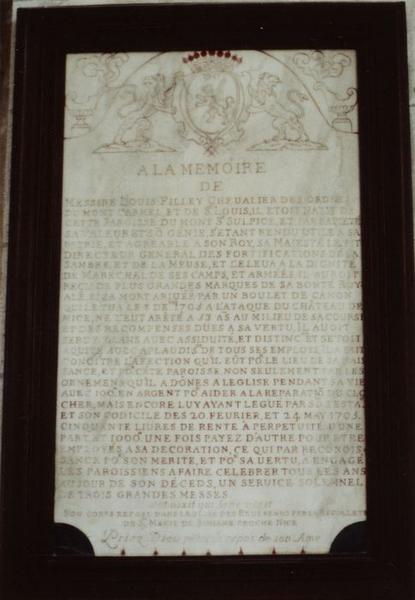 A LA MEMOIRE
DE
MESSIRE LOUIS FILLEY CHEUALIER DES ORDRE
DU MONT CARMEL ET DE St LOUIS, IL ETOIT NATIF DE
CETTE PAROISSE DU MONT St SULPICE, ET PAR
SA VALEUR ET SO GENIE, S'ETANT RENDU UTILE A SA
PATRIE, ET AGREABLE A SON ROY, SA MAJESTÉ LE FIT
DIRECTEUR GENERAL DES FORTIFICATIONS DE LA
SAMBRE ET DE LA MEUSE, ET L'ELEUA A LA DIGNITÉ
DE MARECHAL DE SES CAMPS, ET ARMÉES, IL AUROIT
REÇU DE PLUS GRANDES MARQUES DE SA BONTÉ ROY
ALE, SI SA MORT ARIUÉE PAR UN BOULET DE CANON
1705 A L'ATAQUE DU CHATEAU DE
NICE, NE L'EUT ARETÉ A 53 AS AU MILIEU DE SA COURSE
ET DES RECOMPENSES DUES A SA VERTU, IL AUOIT
SERUY ANS AUEC ASSIDUITÉ, ET DISTINC ET SE TOIT
DE TOUS SES EMPLOIS, IL A FAIT
CONOITRE L'AFECTION QU'IL EUT PO LE LIEU DE SA NAIS
SANCE, ET PO CETE PAROISSE NON SEULEMENT PAR LES
ORNEMENS QU'IL A DONES A L'EGLISE PENDANT SA VIE
AUEC 300 EN ARGENT PO AIDER A LA REPARATIO DU CLO
CHER, MAIS ENCORE LUY AYANT LEGUÉ PAR SO TESTA
ET SON CODICILE DES 20 FEURIER, ET 24 MAY 1705
CINQUANTE LIURES DE RENTE A PERPETUITÉ D'UNE
PART, ET 1000 UNE FOIS PAYEZ D'AUTRE POUR ETRE
EMPLOYÉS A SA DECORATION, CE QUI PAR RECONOIS
SANCE PO SON MERITE, ET PO SA UERTU, A ENGAGÉ
LES PAROISSIENS A FAIRE CELEBRER TOUS LES ANS
AU JOUR DE SON DÉCEDS, UN SERUICE SOLEMNEL
DE TROIS GRANDES MESSES
SON CORPS REPOSE DANS L'EGLISE DES REUERENDS PERES RECOLLETS
DE St MARIE DE PROCHE NICE
Priez Dieu pour le repos de son Ame